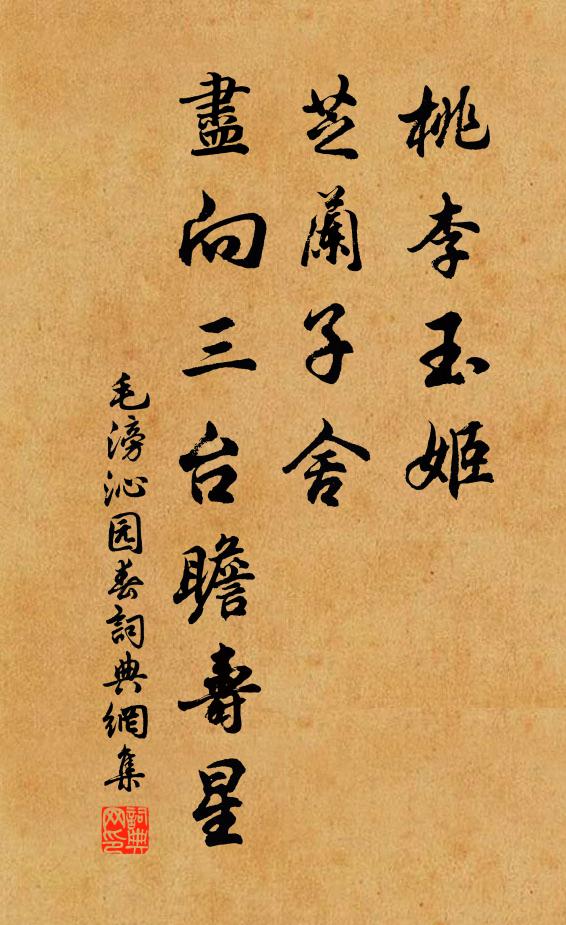 桃李玉姬
芝蘭子舍
盡向三台瞻壽星
毛滂沁园春詞典網集
詞典网印